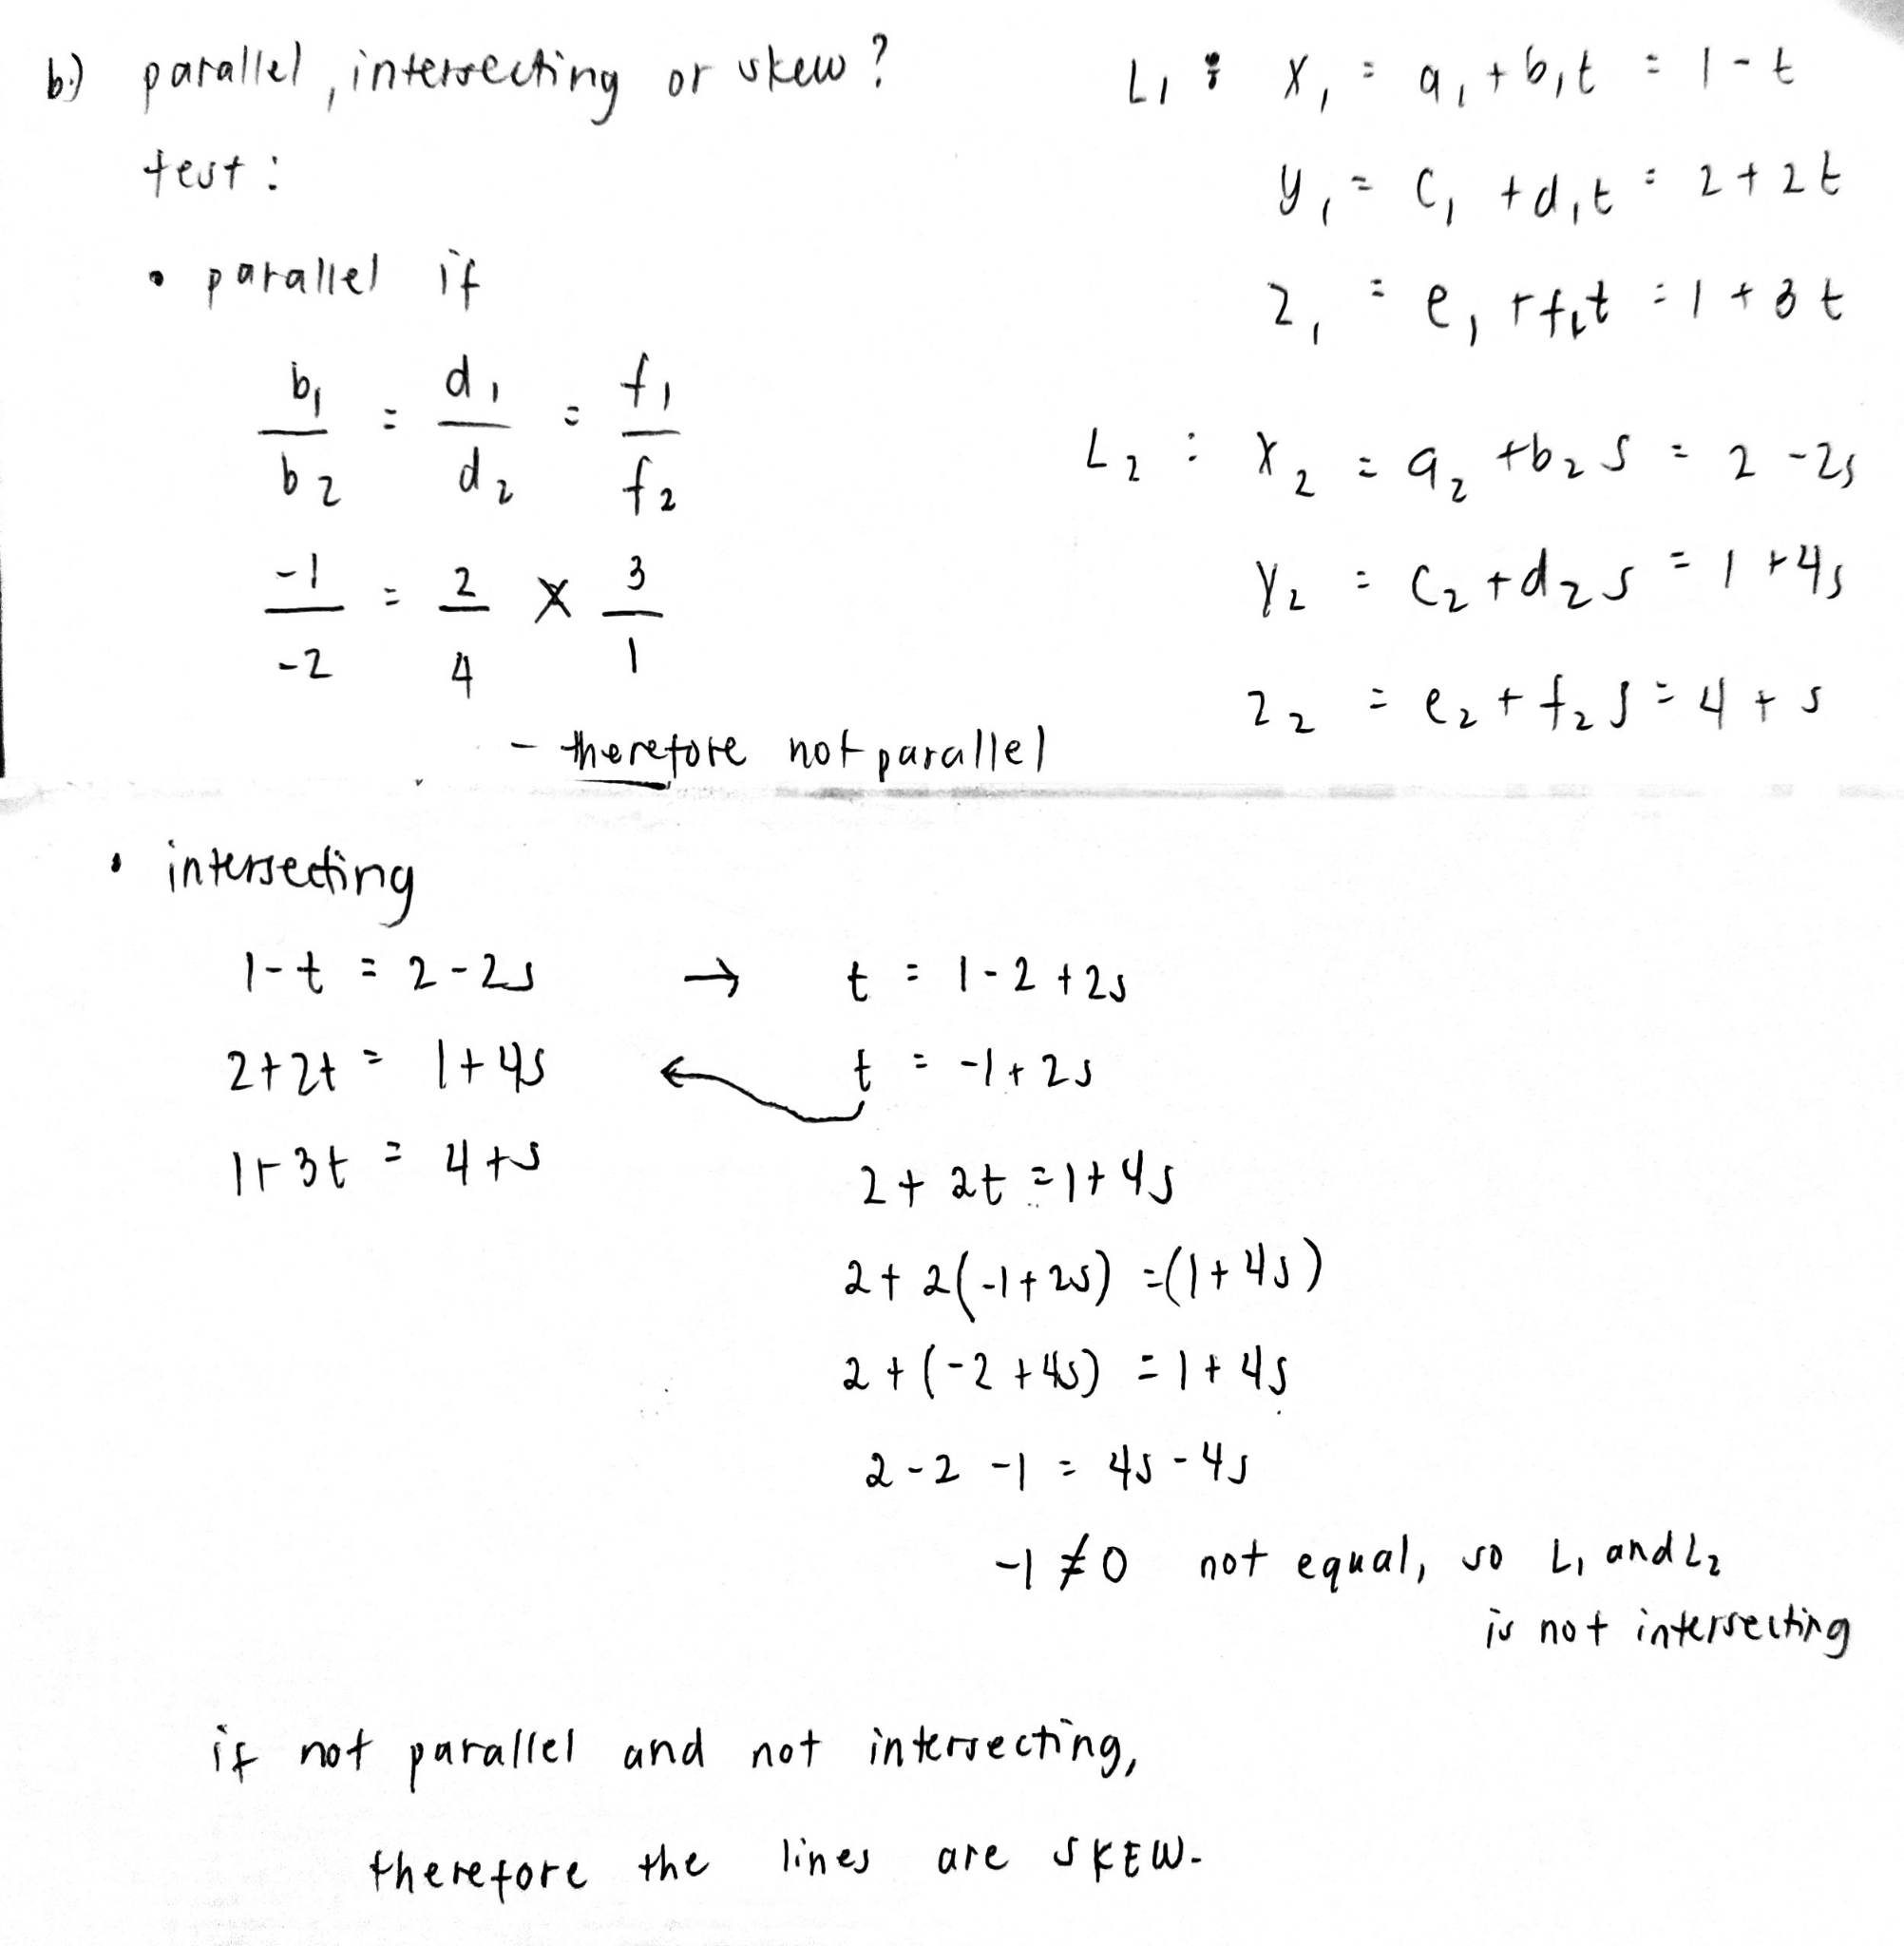 b.) parallel, intersecting or skew?
test:
• parallel if
b₁/b₂ = d₁/d₂ = f₁/f₂
-1/-2 = 2/4 × 3/1
- therefore not parallel
L₁ : x₁ = a₁ + b₁t = 1 - t
y₁ = c₁ + d₁t = 2 + 2t
z₁ = e₁ + f₁t = 1 + 3t
L₂ : x₂ = a₂ + b₂s = 2 - 2s
y₂ = c₂ + d₂s = 1 + 4s
z₂ = e₂ + f₂s = 4 + s
• intersecting
1 - t = 2 - 2s → t = 1 - 2 + 2s
2 + 2t = 1 + 4s ← t = -1 + 2s
1 + 3t = 4 + s
2 + 2t = 1 + 4s
2 + 2(-1 + 2s) = (1 + 4s)
2 + (-2 + 4s) = 1 + 4s
2 - 2 - 1 = 4s - 4s
-1 ≠ 0 not equal, so L₁ and L₂
is not intersecting
if not parallel and not intersecting,
therefore the lines are SKEW.